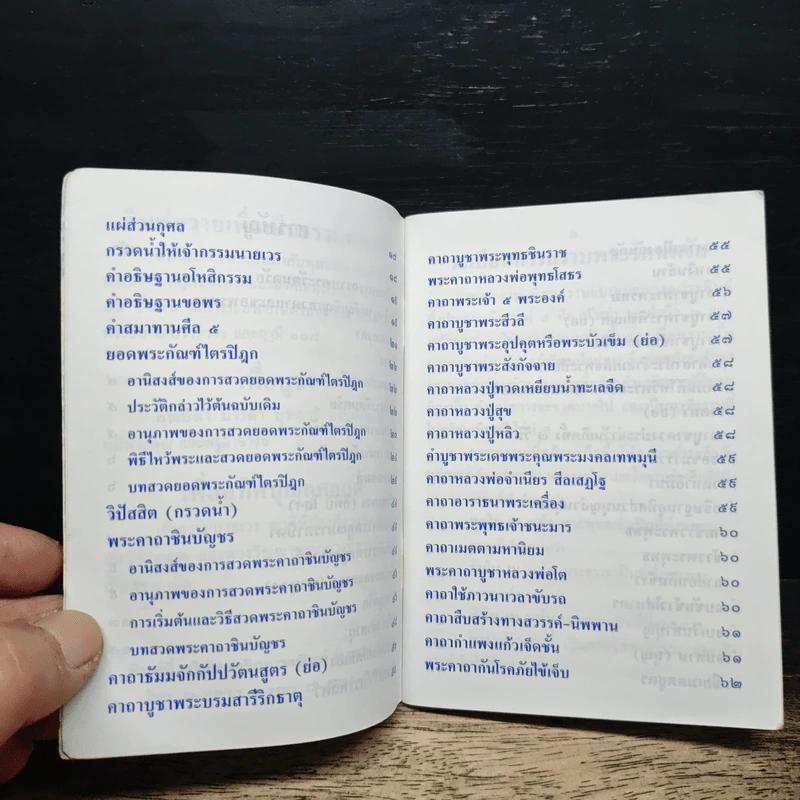 แผ่ส่วนกุศล
กรวดน้ำให้เจ้ากรรมนายเวร
คำอธิษฐานอโหสิกรรม
คำอธิษฐานขอพร
คำสมาทานศีล ๕
ยอดพระกัณฑ์ไตรปิฎก
อานิสงส์ของการสวดยอดพระกัณฑ์ไตรปิฎก
ประวัติกล่าวไว้ต้นฉบับเดิม
อานุภาพของการสวดยอดพระกัณฑ์ไตรปิฎก
พิธีไหว้พระและสวดยอดพระกัณฑ์ไตรปิฎก
บทสวดยอดพระกัณฑ์ไตรปิฎก
วิปัสสิต (กรวดน้ำ)
พระคาถาชินบัญชร
อานิสงส์ของการสวดพระคาถาชินบัญชร
อานุภาพของการสวดพระคาถาชินบัญชร
การเริ่มต้นและวิธีสวดพระคาถาชินบัญชร
บทสวดพระคาถาชินบัญชร
คาถาธัมมจักกัปปวัตนสูตร (ย่อ)
คาถาบูชาพระบรมสารีริกธาตุ
คาถาบูชาพระพุทธชินราช ๕๕
พระคาถาหลวงพ่อพุทธโสธร ๕๕
คาถาพระเจ้า ๕ พระองค์ ๕๖
คาถาบูชาพระสีวลี ๕๗
คาถาบูชาพระอุปคุตหรือพระบัวเข็ม (ย่อ) ๕๗
คาถาบูชาพระสังกัจจาย ๕๘
คาถาหลวงปู่ทวดเหยียบน้ำทะเลจืด ๕๘
คาถาหลวงปู่สุข ๕๘
คาถาหลวงปู่หลิว ๕๘
คำบูชาพระเดชพระคุณพระมงคลเทพมุนี ๕๙
คาถาหลวงพ่อจำเนียร สีลเสฏโฐ ๕๙
คาถาอาราธนาพระเครื่อง ๕๙
คาถาพระพุทธเจ้าชนะมาร ๖๐
คาถาเมตตามหานิยม ๖๐
พระคาถาบูชาหลวงพ่อโต ๖๐
คาถาใช้ภาวนาเวลาขับรถ ๖๐
คาถาสืบสร้างทางสวรรค์-นิพพาน ๖๑
คาถากำแพงแก้วเจ็ดชั้น ๖๑
พระคาถากันโรคภัยไข้เจ็บ ๖๒